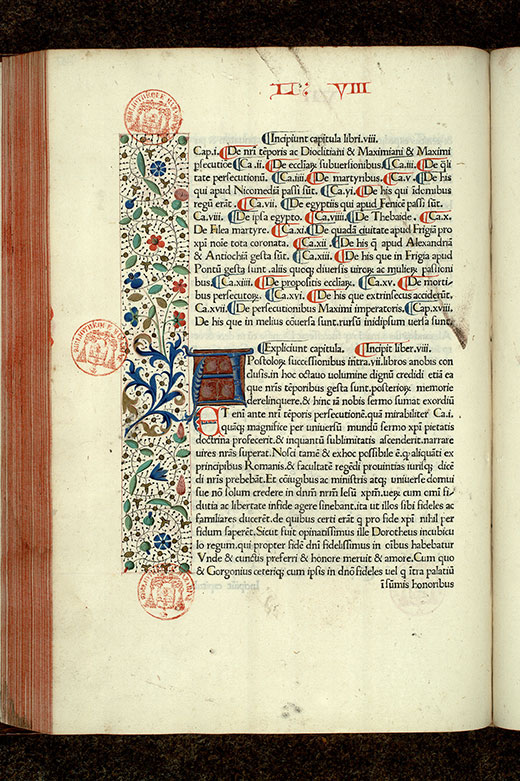 LI: VIII
¶Incipiunt capitula libri.viii.
Cap.i. ¶De nr̄i tēporis ac Dioclitiani & Maximiani & Maximi
psecutiōe ¶Ca.ii. ¶De ecclīaꝝ subuersionibus. ¶Ca.iii. ¶De q̄li
tate persecutionū. ¶Ca.iiii. ¶De martyribus. ¶Ca.v. ¶De his
qui apud Nicomediā passi sūt. ¶Ca.vi. ¶De his qui īdomibus
regū erāt. ¶Ca.vii. ¶De egyptiis qui apud Fenicē passi sūt.
Ca.viii. ¶De ipsa egypto. ¶Ca.viiii. ¶De Thebaide. ¶Ca.x.
De Filea martyre. ¶Ca.xi. ¶De quadā ciuitate apud Frigiā pro
xp̄i noīe tota coronata. ¶Ca.xii. ¶De his q̄ apud Alexandriā
& Antiochiā gesta sūt. ¶Ca.xiii. ¶De his que in Frigia apud
Pontū gesta sunt. aliis quoqꝫ diuersis uiroꝝ ac mulieꝝ passioni
bus. ¶Ca.xiiii. ¶De propositis ecclīaꝝ. ¶Ca.xv. ¶De morti-
bus persecutoꝝ. ¶Ca.xvi. ¶De his que extrinsecus acciderūt.
Ca.xvii. ¶De persecutionibus Maximi imperatoris. ¶Cap.xviii.
De his que in melius cōuersa sunt. rursū inidipsum uersa sunt.
¶Expliciunt capitula. ¶Incipit liber.viii.
APostoloꝝ successionibus intra.vii.libros anobis con
clusis. in hoc octauo uolumine dignū credidi etiā ea
que nr̄is tēporibus gesta sunt. posterioꝝ memorie
derelinquere. & hinc iā nobis sermo sumat exordiū
ET eni ante nr̄i tēporis persecutionē. quā mirabiliter Ca.i.
quāqꝫ magnifice per uniuersū mundū sermo xp̄i pietatis
doctrina profecerit. & inquantū sublimitatis ascenderit. narrare
uires nr̄as superat. Nosci tamē & exhoc possibile ē. q̄ aliquāti ex
principibus Romanis. & facultatē regēdi prouintias iuriſqꝫ dicē
di nr̄is prebebāt. Et cōiugibus ac ministris atqꝫ uniuerse domui
sue nō solum credere in dn̄m nr̄m Iesū xp̄m. uerꝫ cum om̄i fi-
dutia ac libertate infide agere sinebant. ita ut illos sibi fideles ac
familiares ducerēt. de quibus certi erāt q̄ pro fide xp̄i nihil per
fidum saperēt. Sicut fuit opinatissimus ille Dorotheus incubicu
lo regum. qui propter fidē dn̄i fidelissimus in oībus habebatur
Vnde & cunctis preferri & honore meruit & amore. Cum quo
& Gorgonius ceteriqꝫ cum ipsis in dn̄o fideles uel q̄ ītra palatiū
ī sūmis honoribus